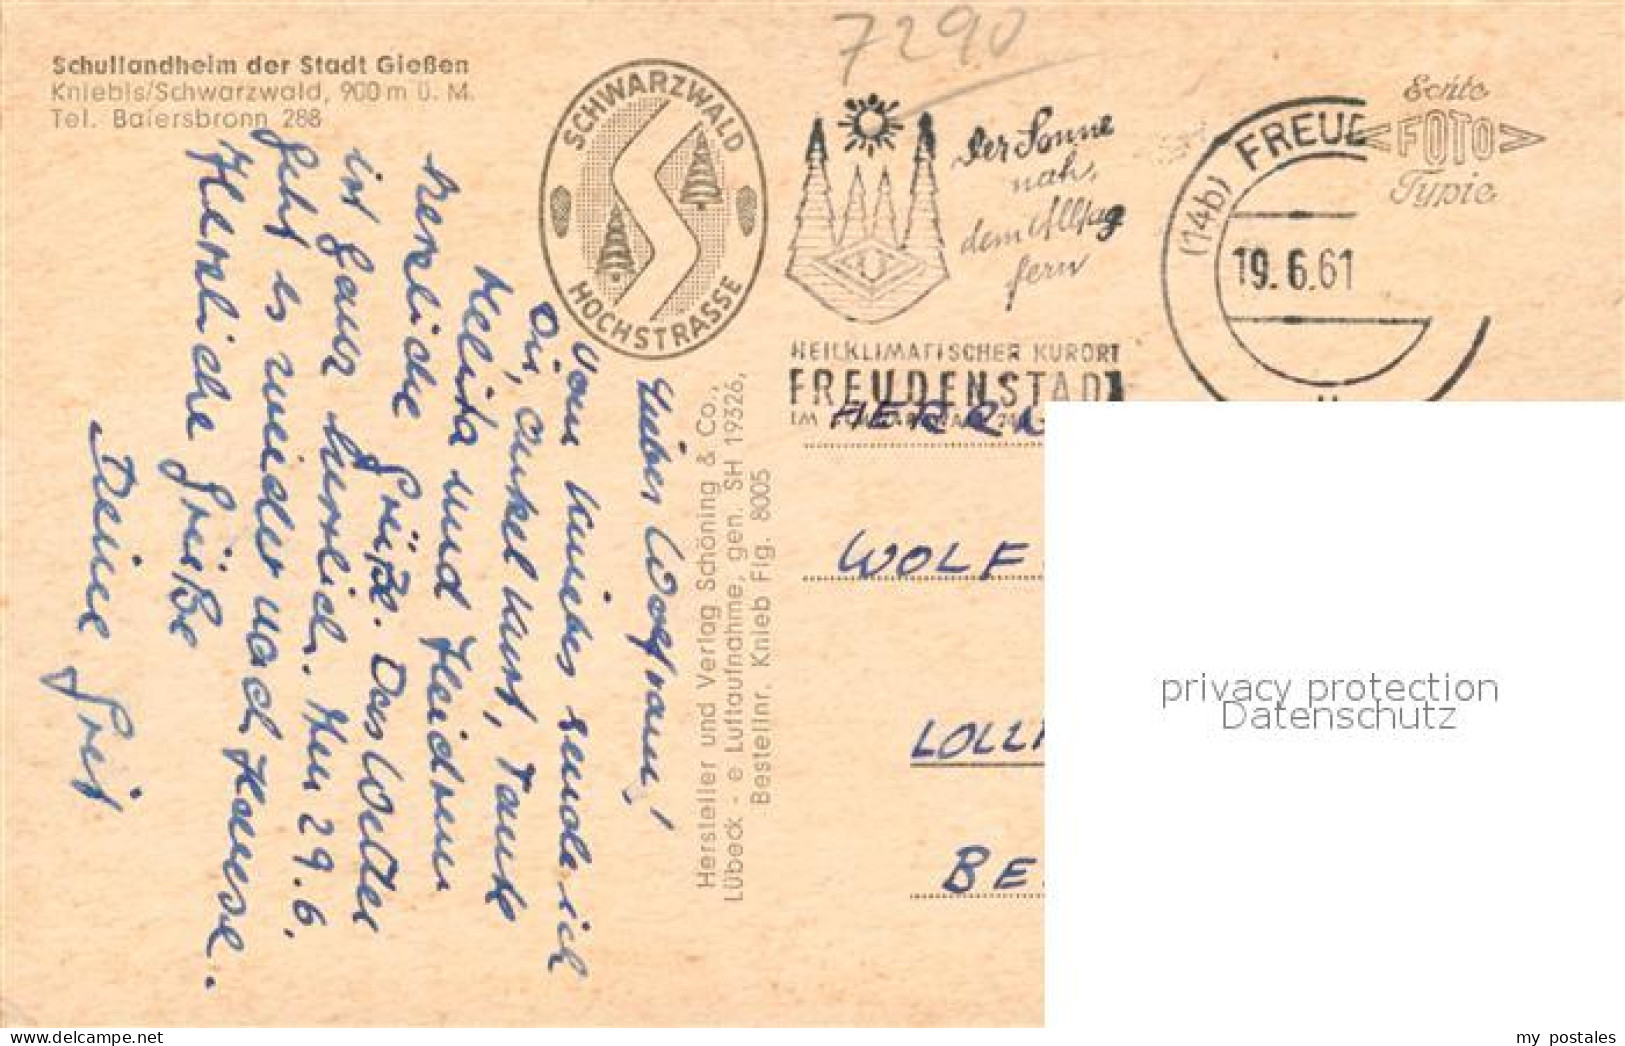 7290
Schullandheim der Stadt Gießen
Kniebis/Schwarzwald, 900 m ü. M.
Tel. Baiersbronn 288
SCHWARZWALD
HOCHSTRASSE
Der Sonne
nah,
dem Alltag
fern
HEILKLIMATISCHER KURORT
FREUDENSTADT
IM
(14b) FREUD
19.6.61
Echte
FOTO
Typie
Lieber Wolfram!
Vom Kniebis sende ich
Dir, Onkel Kurt, Tante
Melitta und Heidrun
herzliche Grüße. Das Wetter
ist ganz herrlich. Am 29.6.
geht es wieder nach Hause.
Herzliche Grüße
Deine
Hersteller und Verlag Schöning & Co.,
Lübeck - e Luftaufnahme, gen. SH 19326,
Bestellnr. Knieb Flg. 8005
HERRN
WOLF
LOLL
BE
privacy protection
Datenschutz
delcampe.net
my_postales